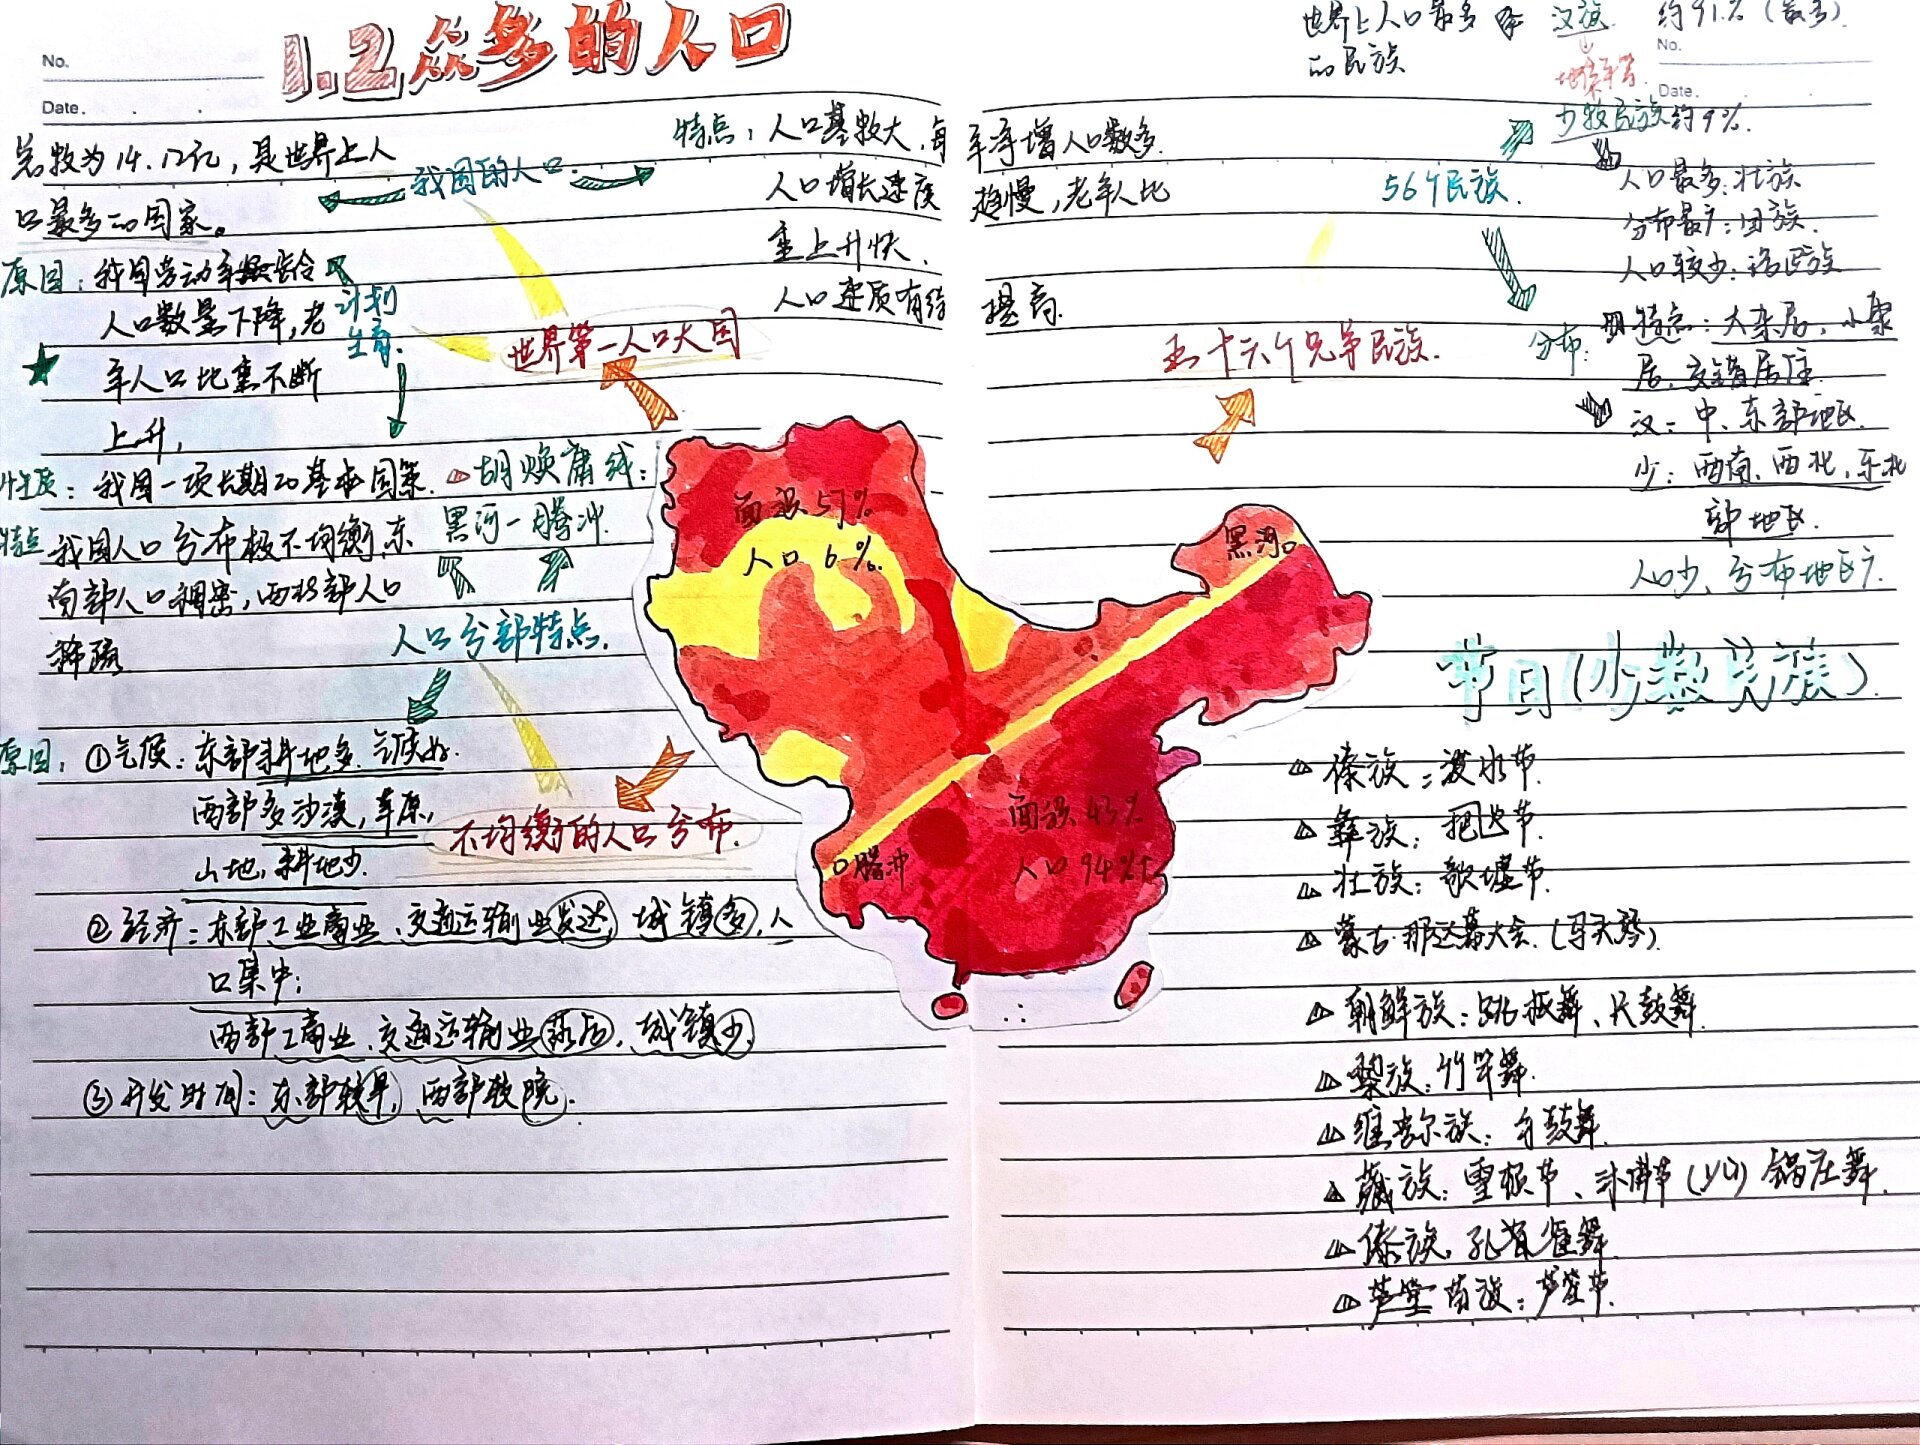 No.
Date.
1.2众多的人口
总数为14.12亿，是世界上人
口最多的国家。
我国的人口
特点：人口基数大，每年净增人口数多.
人口增长速度趋慢，老年人比
重上升快.
人口素质有待提高.
原因：我国劳动年龄
人口数量下降，老
年人口比重不断
上升，
计划
生育.
世界第一人口大国
性质：我国一项长期的基本国策.
胡焕庸线：
黑河—腾冲.
特点 我国人口分布极不均衡，东
南部人口稠密，西北部人口
稀疏
人口分部特点.
原因：①气候：东部耕地多.气候好.
西部多沙漠，草原，
山地，耕地少.
不均衡的人口分布.
②经济：东部工业商业、交通运输业发达，城镇多，人
口集中；
西部工商业、交通运输业落后，城镇少.
③开发时间：东部较早，西部较晚.
面积57%
人口6%.
黑河
面积43%
人口94%
腾冲
世界上人口最多
的民族
汉族 约91%（最多）
No.
Date.
少数民族约9%.
56个民族.
人口最多：壮族
分布最广：回族.
人口较少：珞巴族
五十六个兄弟民族.
分布：
特点：大杂居，小聚
居、交错居住.
汉：中、东部地区.
少：西南、西北，东北
部地区.
人口少、分布地区广.
节日(少数民族).
傣族：泼水节.
彝族：把节.
壮族：歌墟节.
蒙古·那达慕大会.(马头琴).
朝鲜族：跳板舞、长鼓舞.
黎族：竹竿舞.
维吾尔族：手鼓舞.
藏族：雪顿节、沐佛节 锅庄舞.
傣族.孔雀舞.
苗族：芦笙节.